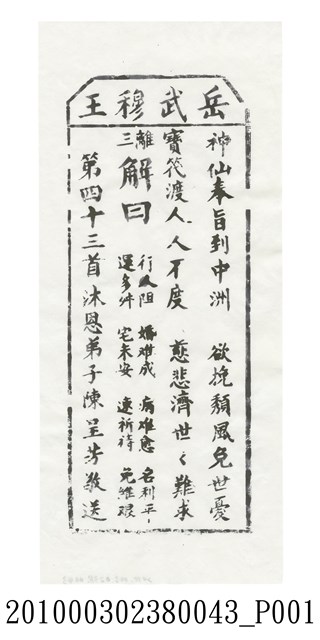 岳武穆王
神仙奉旨到中洲 欲挽頹風免世憂
寶筏渡人人不度 慈悲濟世々難求
離三 解曰 行人阻 婚難成 病難愈 名利平
運多舛 宅未安 速祈禱 免維艱
第四十三首沐恩弟子陳呈芳敬送
201000302380043_P001